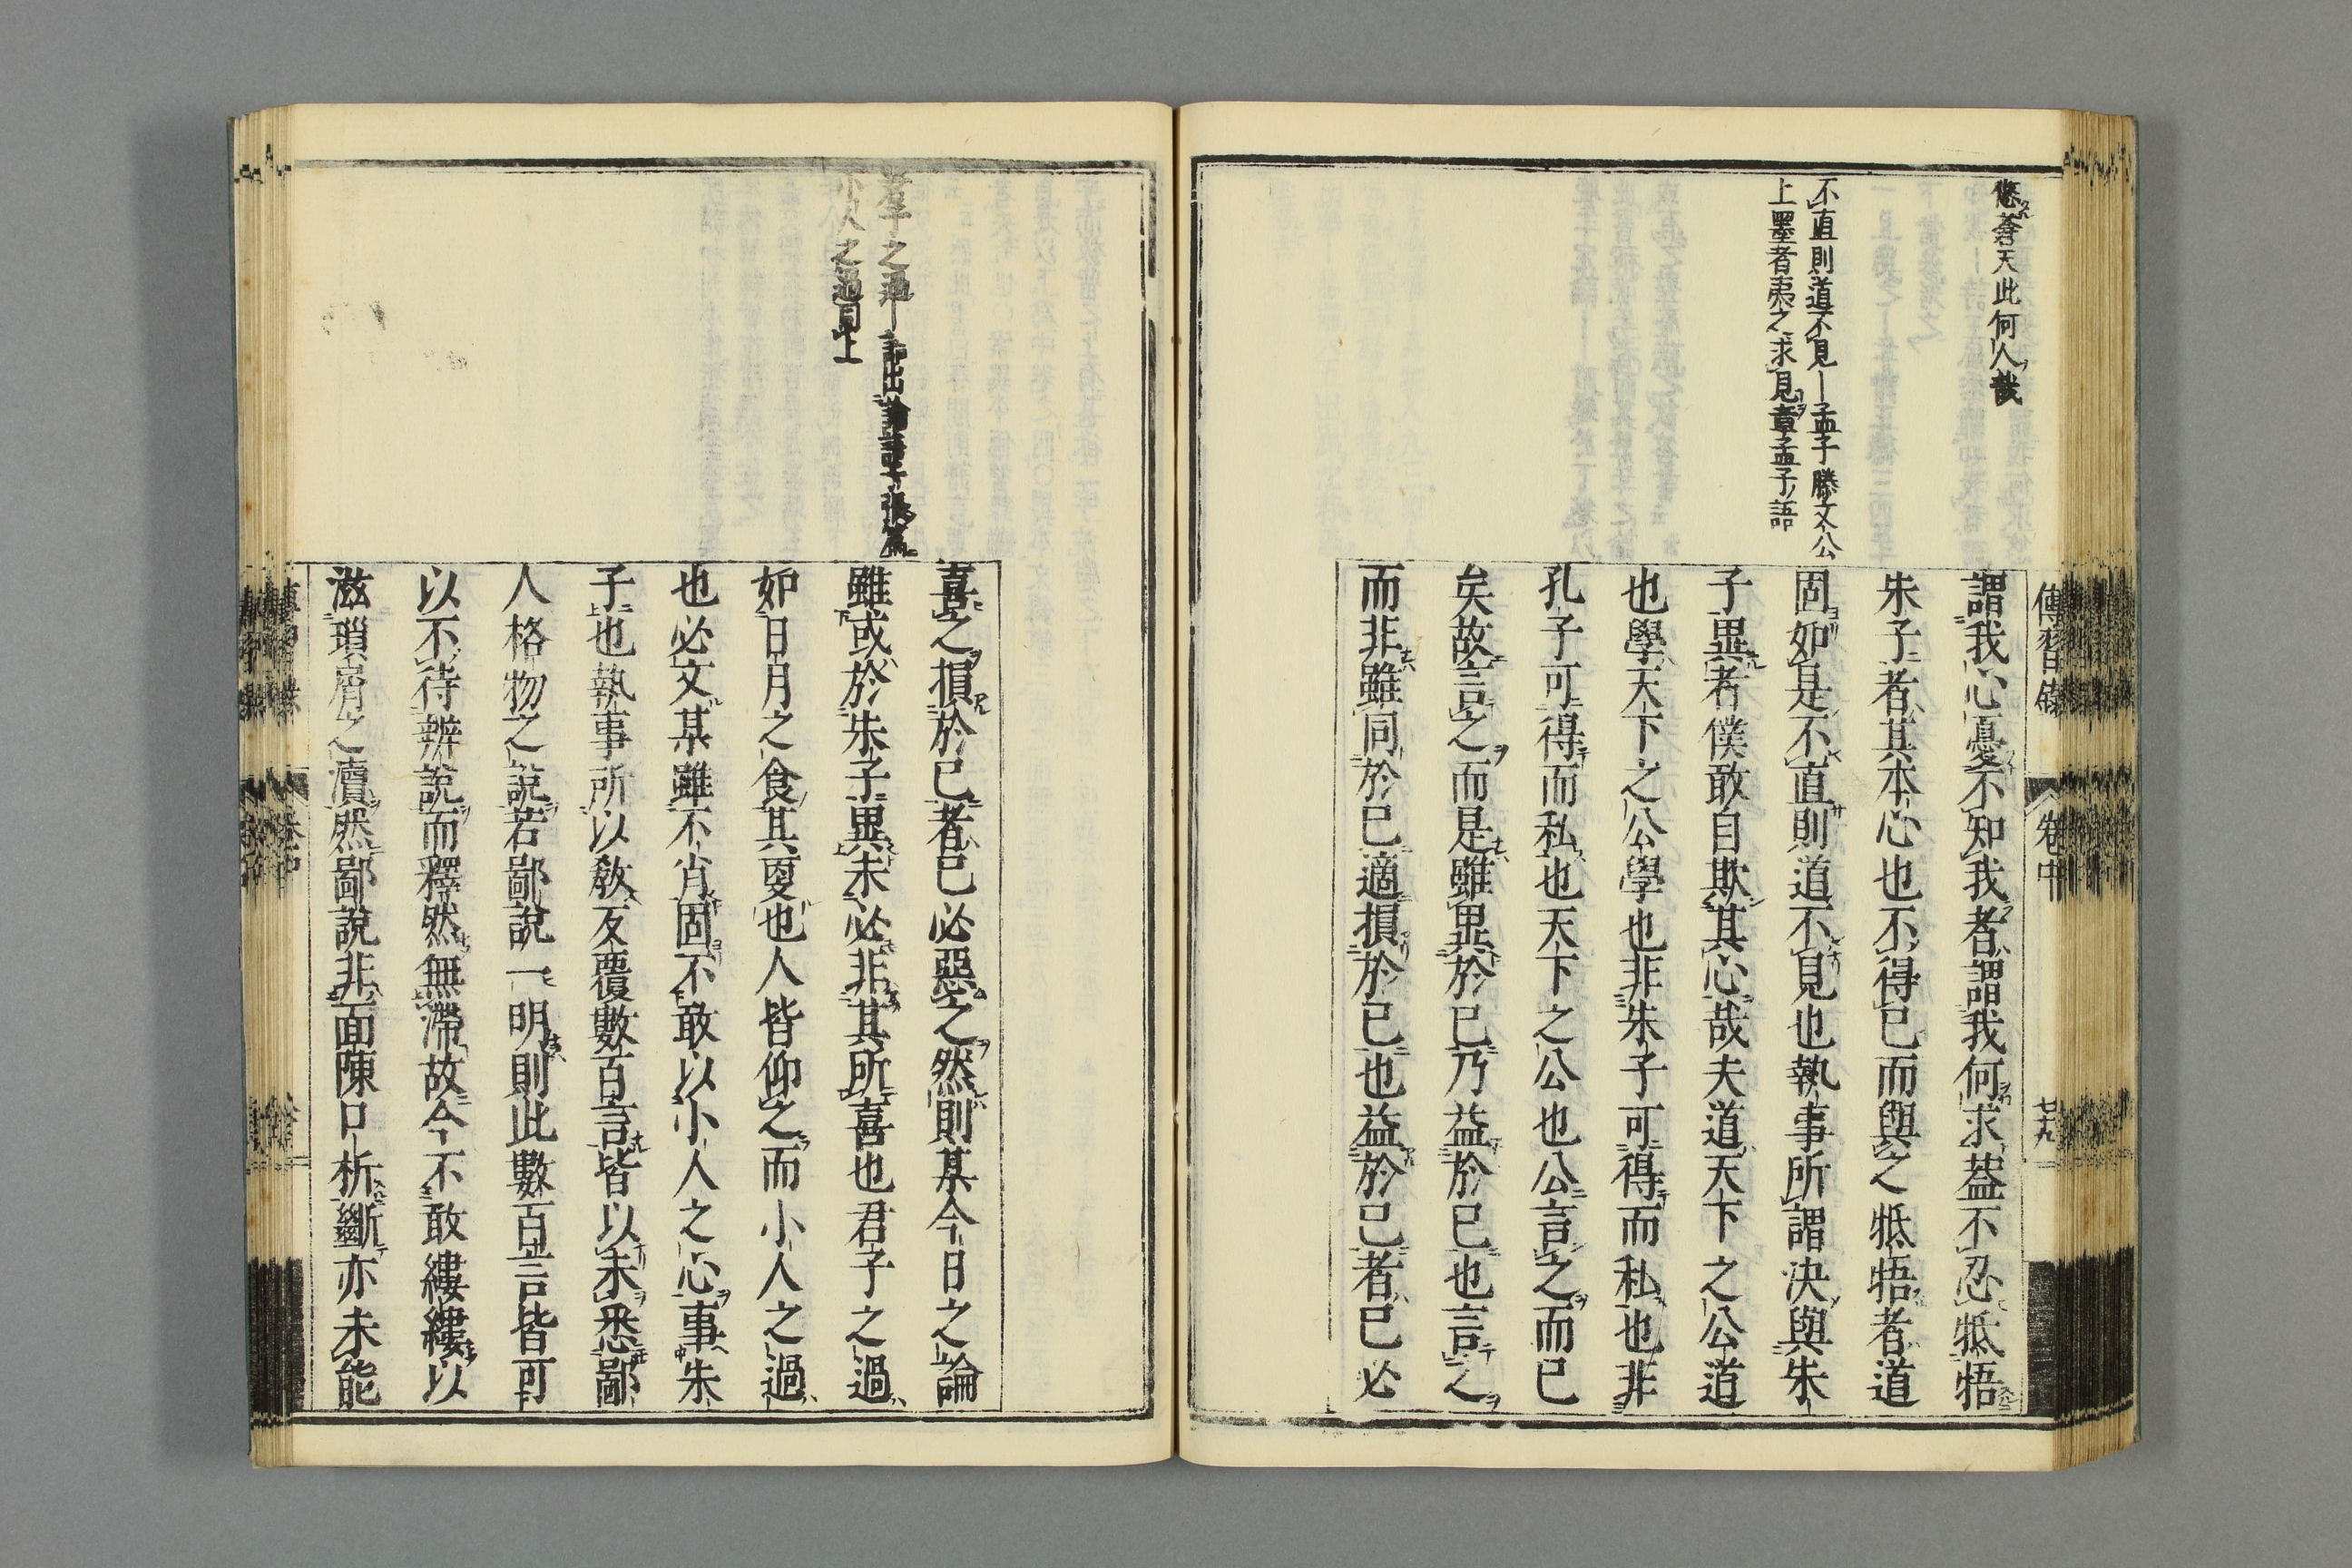 悠蒼天此何人哉
不直則道不見―孟子滕文公
上墨者夷之求見章孟子語
傳習錄
卷中
廿九
謂我心憂不知我者謂我何求葢不忍牴牾
朱子者其本心也不得已而與之牴牾者道
固如是不直則道不見也執事所謂決與朱
子異者僕敢自欺其心哉夫道天下之公道
也學天下之公學也非朱子可得而私也非
孔子可得而私也天下之公也公言之而已
矣故言之而是雖異於已乃益於已也言之
而非雖同於已適損於已也益於己者已必
君子之過―語出論語子張篇
小人之過同上
喜之損於已者已必惡之然則某今日之論
雖或於朱子異未必非其所喜也君子之過
如日月之食其更也人皆仰之而小人之過
也必文某雖不肖固不敢以小人之心事朱
子也執事所以敎反覆數百言皆以未悉鄙
人格物之說若鄙說一明則此數百言皆可
以不待辨說而釋然無滯故今不敢縷縷以
滋瑣屑之瀆然鄙說非面陳口析斷亦未能